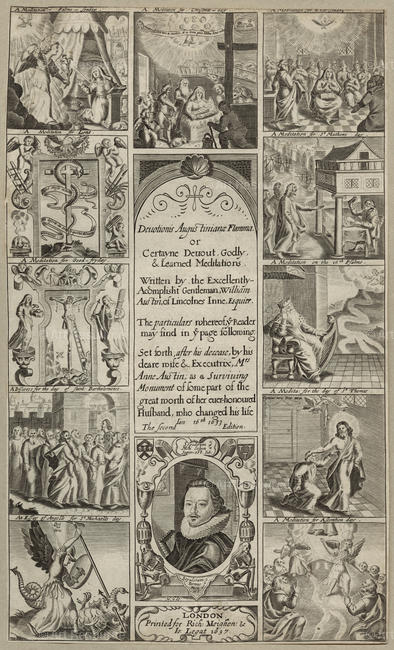 A Meditation Palme-Sunday
A Meditation for Christmas-day
A Meditation for
A Meditation for Lent
A Meditation for Good-fryday
A Discourse for the day of Saint Bartholomewe
An Essay of Angells for St Michaells day
Devotionis Augustinianæ Flamma
or
Certayne Devout, Godly,
& Learned Meditations.
Written by the Excellently-
Acomplisht Gentleman, William
Austin, of Lincolnes Inne, Esquier.
The particulars whereof ye Reader
may find in ye page following
Set forth, after his decease, by his
deare wife & Executrix, Mrs
Anne Austin, as a Surviving
Monument of some part of the
great worth of her ever-honoured
Husband, who changed his life
Jan 16th 1633
The second Edition.
A Meditation for St Mathews day
A Meditation on the Psalme
A Medita: for the day of St Thomas
A Meditation for Assention day
LONDON
Printed for Rich: Meighen &
Io: Legat 1637